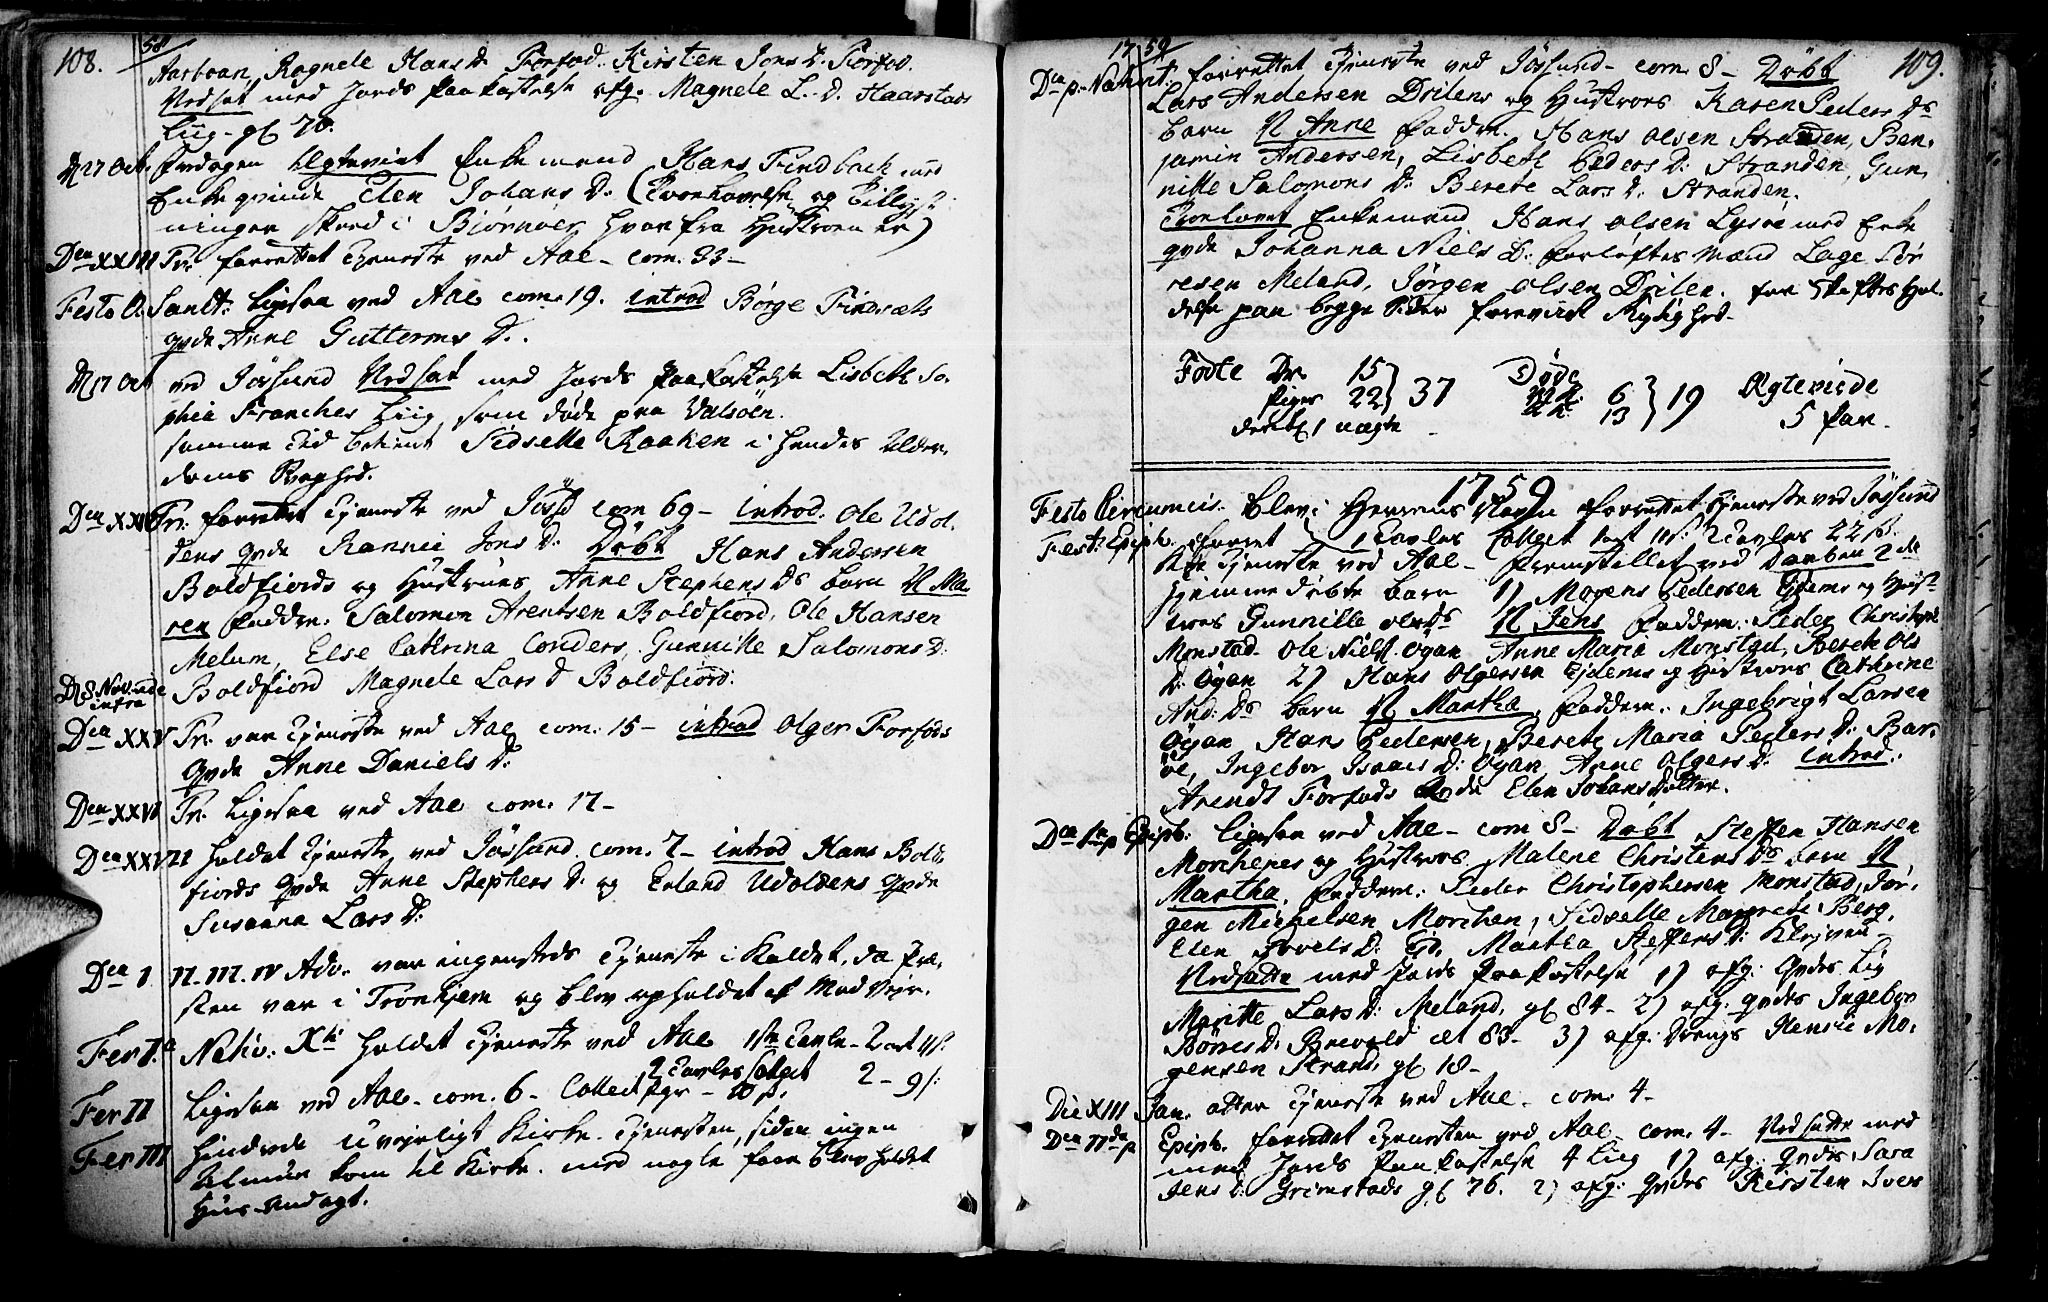 108. 58
Aarboan, Ragnele Hans D. Forfod. Kirsten Jons D. Forfod.
Nedsat med Jords Paakastelse afg. Magnele L. D. Haarstads
Liig. gl 70.
D 27 Oct. Fredagen Egteviet Enkemand Hans Findbach med
Enkeqvinde Elen Johans D. (Troelovelse og Tillys-
ningen skeed i Bjørnøer, hvorfra Hustroen er)
Dca XXIII Tr. forrettet Tjeneste ved Aae - com. 33 -
Festo O. Sanct: Ligesaa ved Aae com. 19. introd Børge Findsæts
qvde Anne Gutterms D.
D 17 Oct ved Jøssund Nedsat med Jords Paakastelse Lisbeth So-
phia Franches Liig, som døde paa Valsøen.
samme Tid betient Sidselle Raaken i hendes Alder-
doms Svaghed.
Dca XXIV Tr. forrettet Tjeneste ved Jøssd com 69 - introd. Ole Udol-
dens qvde Rannei Jons D. Døbt Hans Andersen
Boldfiords og Hustrues Anne Stephens Ds barn N. Ma-
ren Faddre. Salomon Arentsen Boldfiord, Ole Hansen
Melum, Else Cathrina Conders, Gunnille Salomons D.
D 8 Nov. vide infra Boldfiord Magnele Lars D Boldfiord.
Dca XXV Tr. var Tjeneste ved Aae com. 15 - introd Olger Forfods
Qvde Anne Daniels D.
Dca XXVI Tr. Ligesaa ved Aae com. 17 -
Dca XXVII holdet Tjeneste ved Jøssund com. 7 - introd Hans Bold-
fiords Qvde Anne Stephens D. og Erland Udoldens Qvde
Susanna Lars D.
Dca I II. III. IV Adv. var ingensteds Tjeneste i Kaldet, da Præ-
sten var i Tronhjem og blev opholdet af Mod Vejr.
Fer I Nativ. Xti holdet Tjeneste ved Aae 1ste Tavle - 2 ort
2 Tavles 2 - 9 s:
Fer II Ligesaa ved Aae. com. 6 - Collect
Fer III hindrede Uvejerligt Kirke. Tjenesten, siden ingen
Almue kom til Kirke. med nogle faae blev holdet
Huus Andagt.
17 59 109.
Dca p. Nativit. forrettet Tjeneste ved Jøssund - com. 8 - Døbt
Lars Andersen Drilens og Hustroes Karen Peders Ds
barn N Anne Faddre. Hans Olsen Stranden, Ben-
jamin Andersen, Lisbeth Peders D: Stranden, Gun-
nille Salomons D: Berete Lars D: Stranden.
Troelovet Enkemand Hans Olsen Lysøe med Enke
qvde Johanna Niels D: Forløftes Mænd Lage Tør-
resen Meland, Jørgen Olsen Drilen. for
delse paa begge Sider foreviist Rigtighed.
Fødte Dr. 15 } 37 Døde M.K. 6 } 19 Ægteviede
Piger 22 } Q.K. 13 } 5 Par.
deribl 1 uægte -
1759
Festo Circumcis. Blev i Herrens Navn forrettet Tjeneste ved Jøssund
Fest. Epiph. 1 Tavles Collect 1 ort 11 s. 2 Tavles 22 s.
Tjeneste ved Aae - Fremstillet ved Daaben 2de
hjemme døbte børn 1) Mogens Pedersen Tjdems og Hust-
roes Gunnille Ols Ds N Jens Faddere: Peder Christophr
Monstad. Ole Niels. Øyan Anne Maria Monstad, Berete Ols
D. Øyan 2) Hans Olgersen Tjdems og Hustroes Cathrine
And: Ds barn N Martha, Faddere. Ingebrigt Larsen
Øyan Hans Pedersen, Berete Maria Peders D: Bar-
øe, Ingebor Isaacs D: Øyan Anne Olgers D: introd.
Arendt Forfods qvde Elen Johans Datter.
Dca 1. p Epiph. Ligesaa ved Aae - com 8 - Døbt Steffen Hansen
Morchenes og Hustroes Malene Christens Ds barn N
Martha, Faddere. Peder Christophersen Monstad, Jør-
gen Michelsen Morchen, Sidselle Margrete Berg,
Elen Povels D: Martha Steffens D:
Nedsatte med Jords Paakastelse 1) afg: Qvdes Lig
Maritte Lars D: Meland, gl 84 - 2) afg: qvdes Ingebor
Børres D: Brevold æt 83 - 3) afg: Drengs Henric Mo-
gensen Strand, gl 18 -
Die XIII Jan. atter Tjeneste ved Aae - com. 4 -
Dca IIda p Epiph. forrettet Tjenesten ved Aae com. 4 - Nedsatte med
med Jords Paakastelse 4 Liig 1) afg: Qvdes Sara
Jens D: Grimstads gl 76. 2) afg: Qvdes Kirsten Ivers